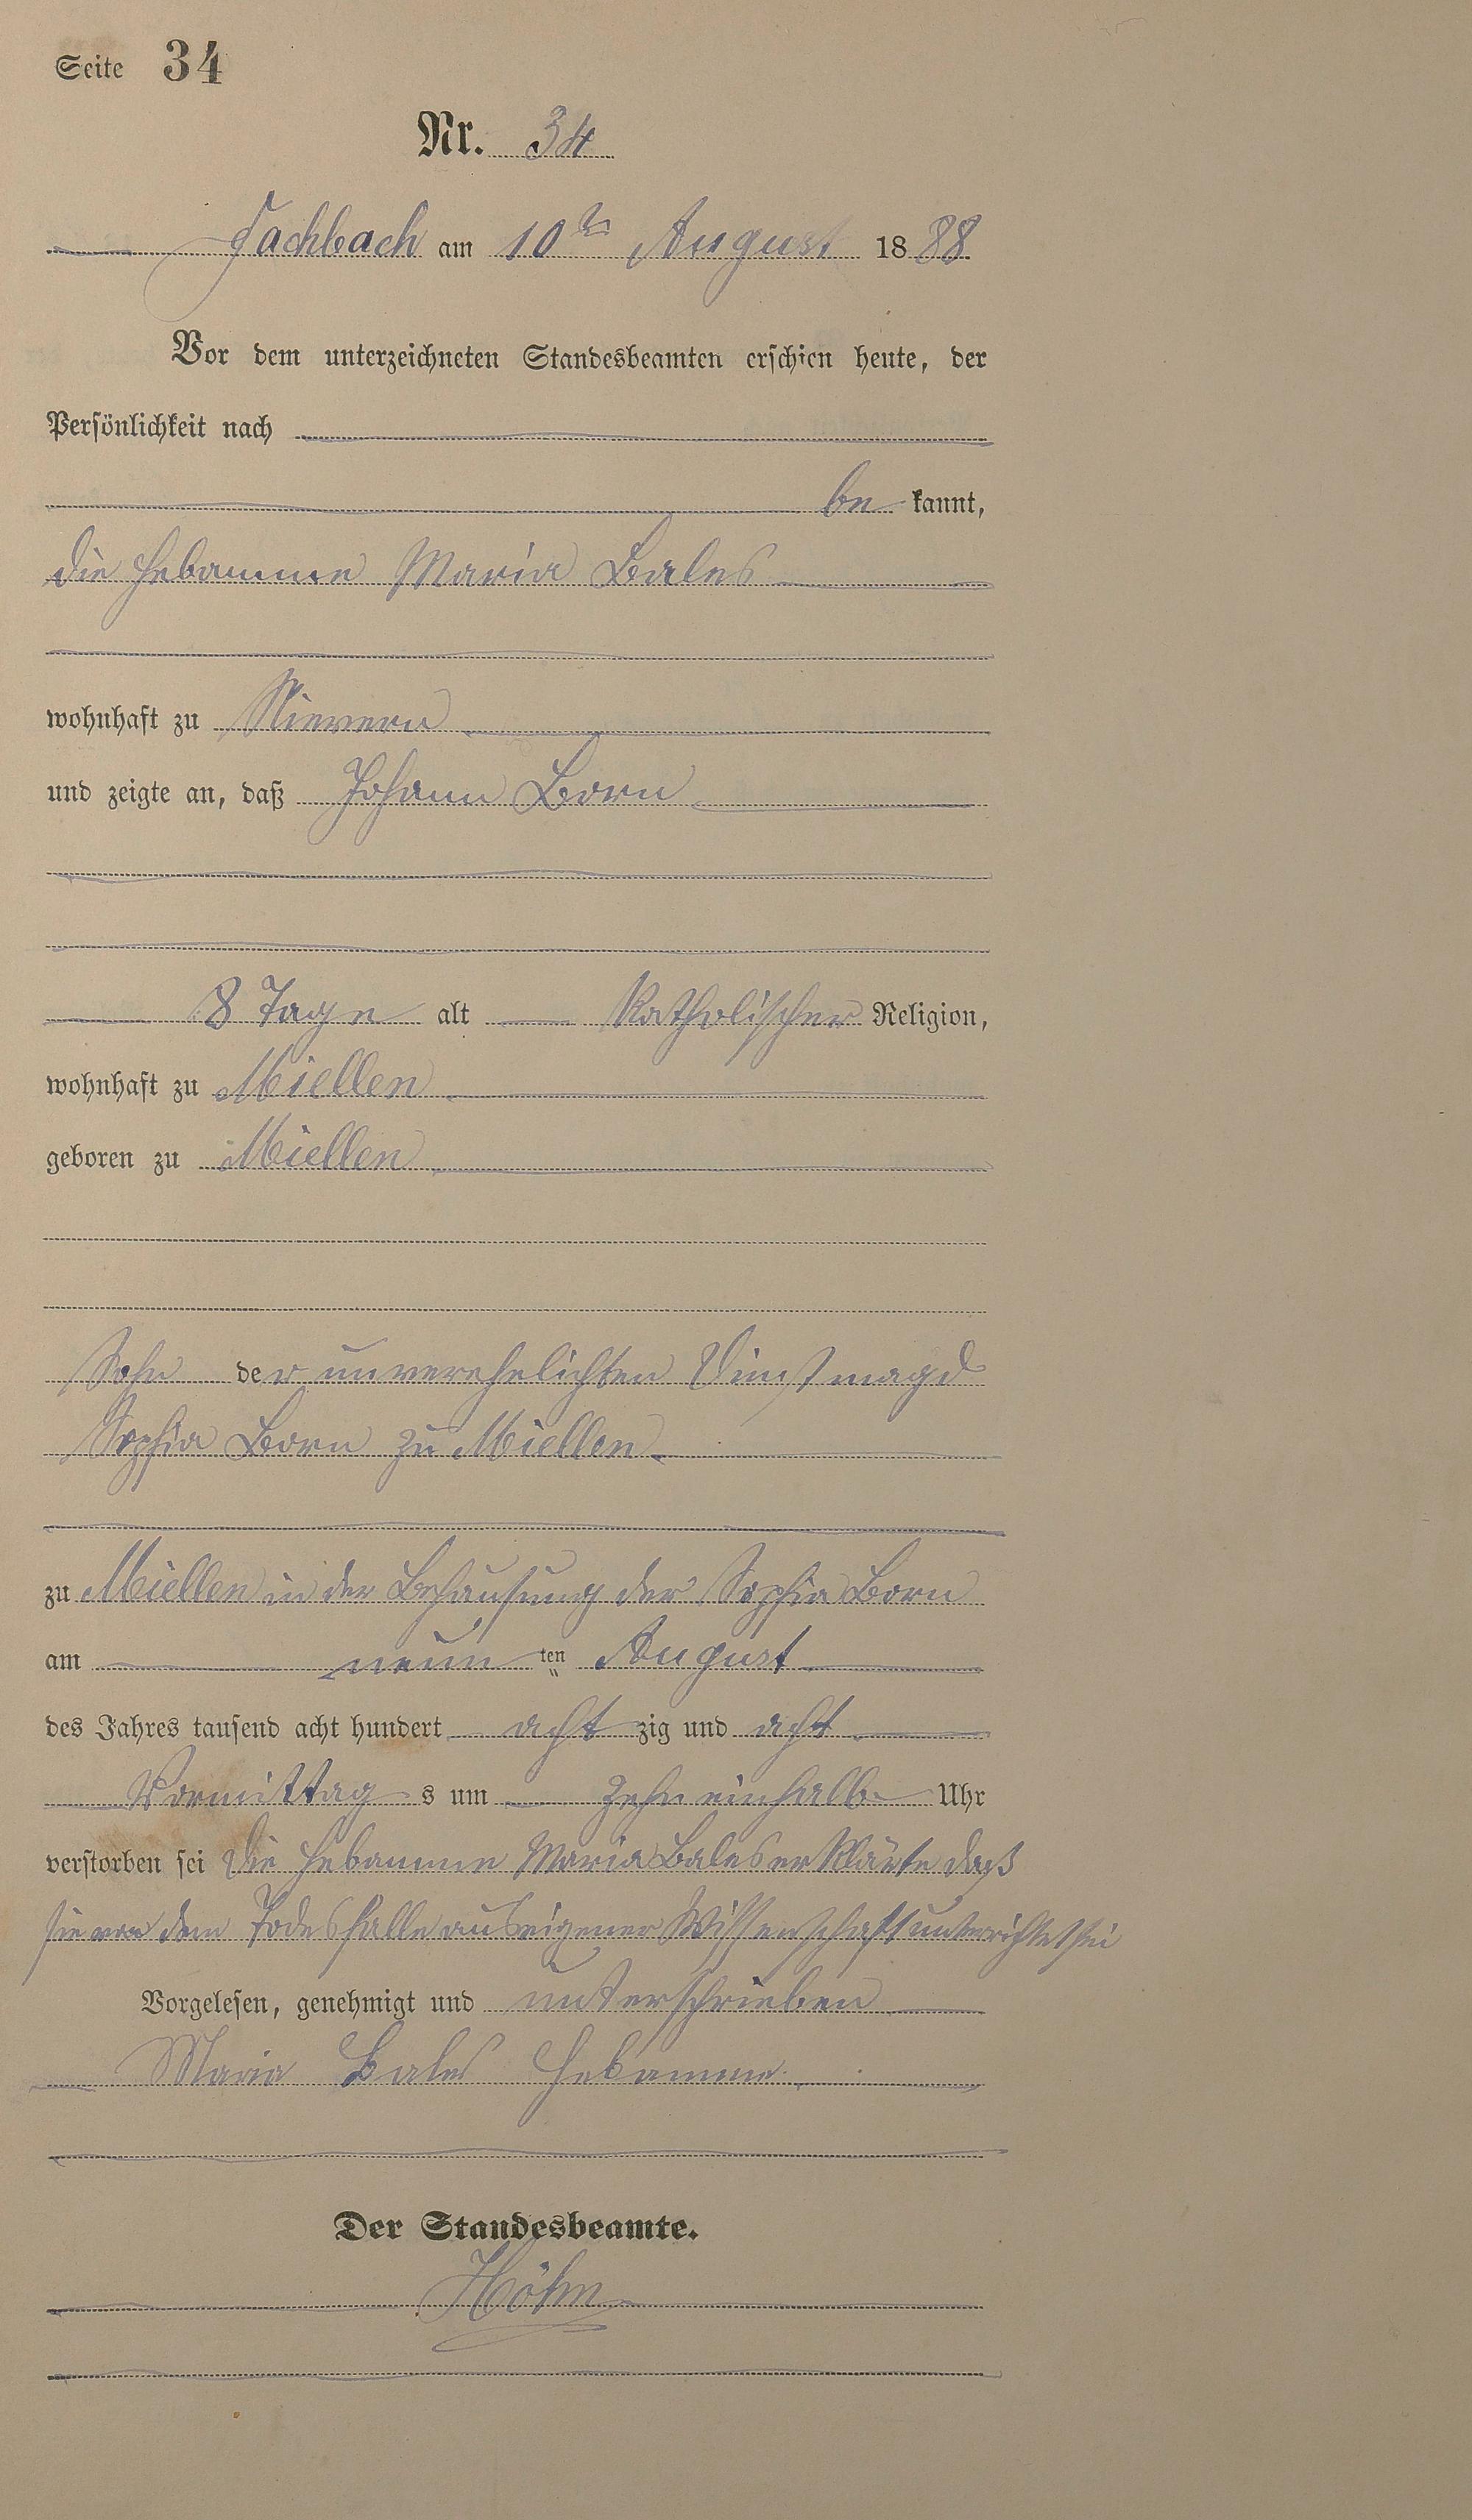 Seite 34
Nr. 34
Fachbach am 10ten August 1888
Vor dem unterzeichneten Standesbeamten erschien heute, der
Persönlichkeit nach
be kannt,
die Hebamme Maria Bales
wohnhaft zu Nievern
und zeigte an, daß Johann Born
8 Tage alt katholischer Religion,
wohnhaft zu Miellen
geboren zu Miellen
Sohn der unverehelichten Dinstmagd
Sophia Born zu Miellen
zu Miellen in der Behausung der Sophia Born
am neun ten August
des Jahres tausend acht hundert acht zig und acht
Vormittag s um zehn einhalb Uhr
verstorben sei Die Hebamme Maria Bales erklärte daß
sie von dem Todesfalle aus eigener Wissenschaft unterrichtet sei
Vorgelesen, genehmigt und unterschrieben
Maria Bales Hebamme
Der Standesbeamte.
Höhn